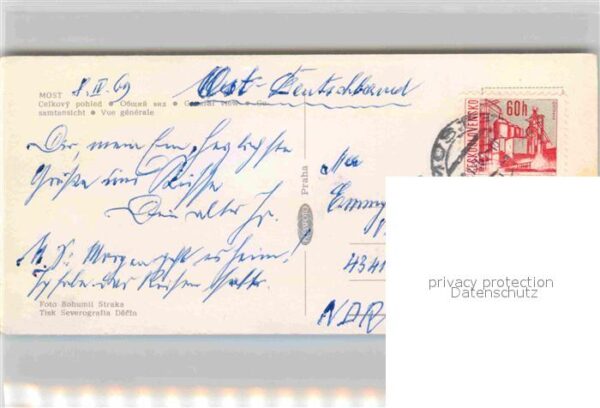 MOST 8.IV.69 Ost-Deutschland
Celkový pohled • Общий вид • General view • Ge-
samtansicht • Vue générale
Dir, mein
Grüße und Küsse
Dein alter
N.S: Morgen geht es heim!
Ich habe das Reisen satt.
Foto Bohumil Straka
Tisk Severografia Děčín
Praha
ČESKOSLOVENSKO
60h
MOST
Emmy
4341
NDR
privacy protection
Datenschutz